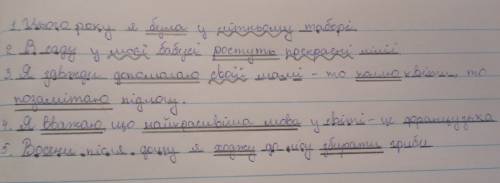 1. Цього року я була у літньому таборі.
2. В саду у моєї бабусі ростуть прекрасні лілії
3. Я завжди допомагаю своїй мамі - то квіти, то
позамітаю підлогу.
4. Я вважаю, що найкрасивіша мова у світі - це французька
5. Восени після дощу я ходжу до лісу збирати гриби